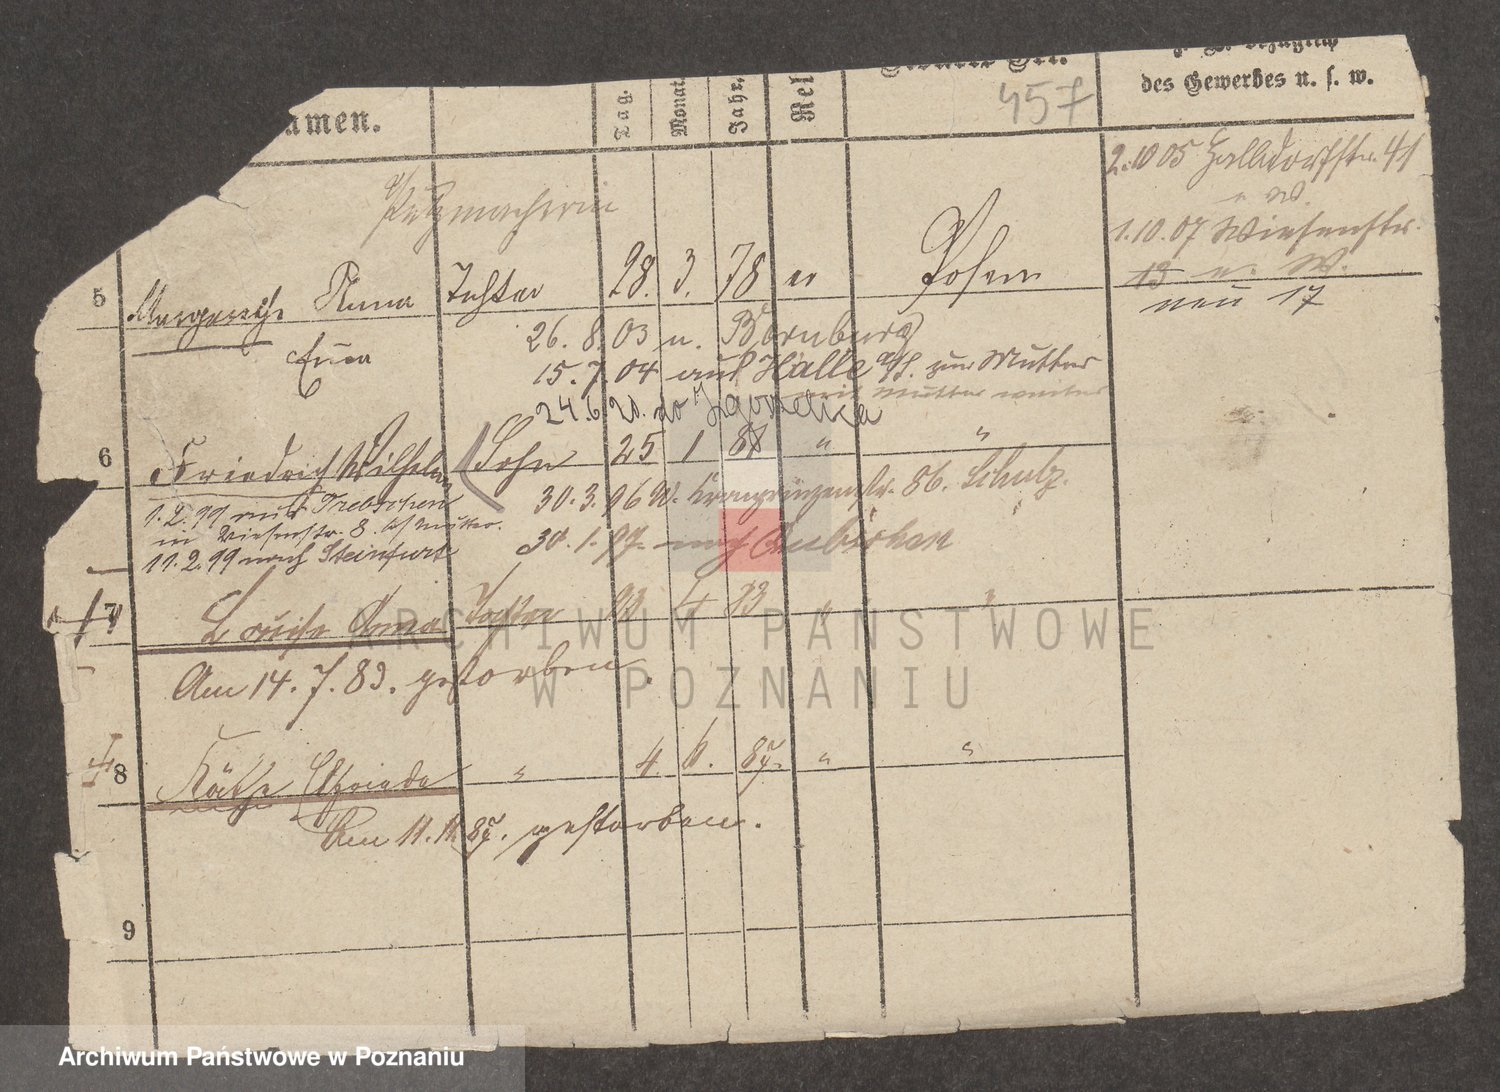 amen.
Tag.
Monat.
Jahr.
Rel
des Gewerbes u. s. w.
457
2.10 05 Halldorfstr. 41
u W.
1.10.07 Wiesenstr.
13 u. W.
neu 17
Putzmacherin
5 Margarethe Anna Tochter 28. 3. 78 " Posen
Eua
26. 8. 03 n. Bornburg
15. 7. 04 aus Halle a/S. zur Mutter
mit Mutter weiter
24 6 20. do
6 Friedrich Wilhelm Sohn 25 1 81 " "
1. 2. 99 aus Trebschen
in Wiesenstr. 8. b/ Mutter.
11. 2. 99 nach Steinfurt
30. 3. 96 W. Kronprinzenstr. 86. Schulz.
30. 1. 97. nach
7 Louise Anna Tochter 23 4 83 " "
Am 14. 7. 83. gestorben.
8 Käthe Elfriede " 4. 6. 87. " "
Am 11. 11. 87. gestorben.
9
ARCHIWUM PAŃSTWOWE
W POZNANIU
Archiwum Państwowe w Poznaniu